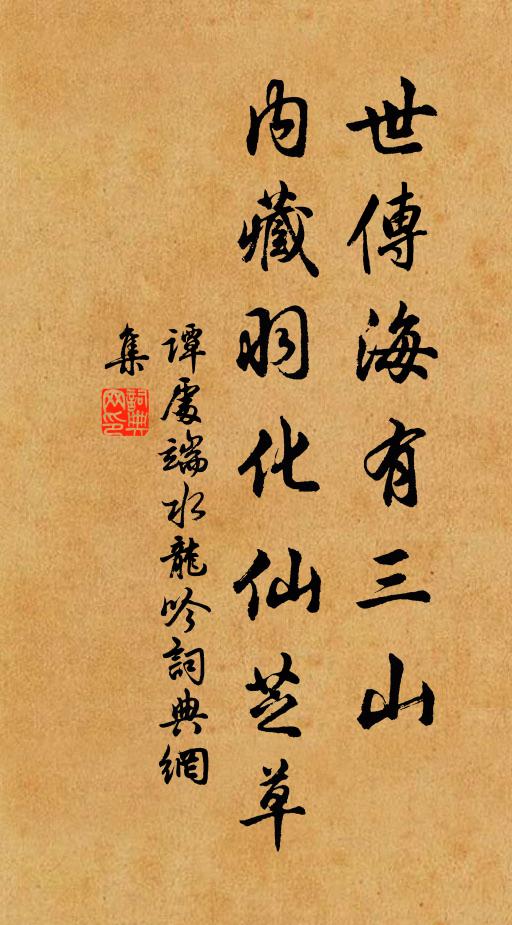 世傳海有三山
内藏羽化仙芝草
譚處端水龍吟詞典網
集
詞典網印